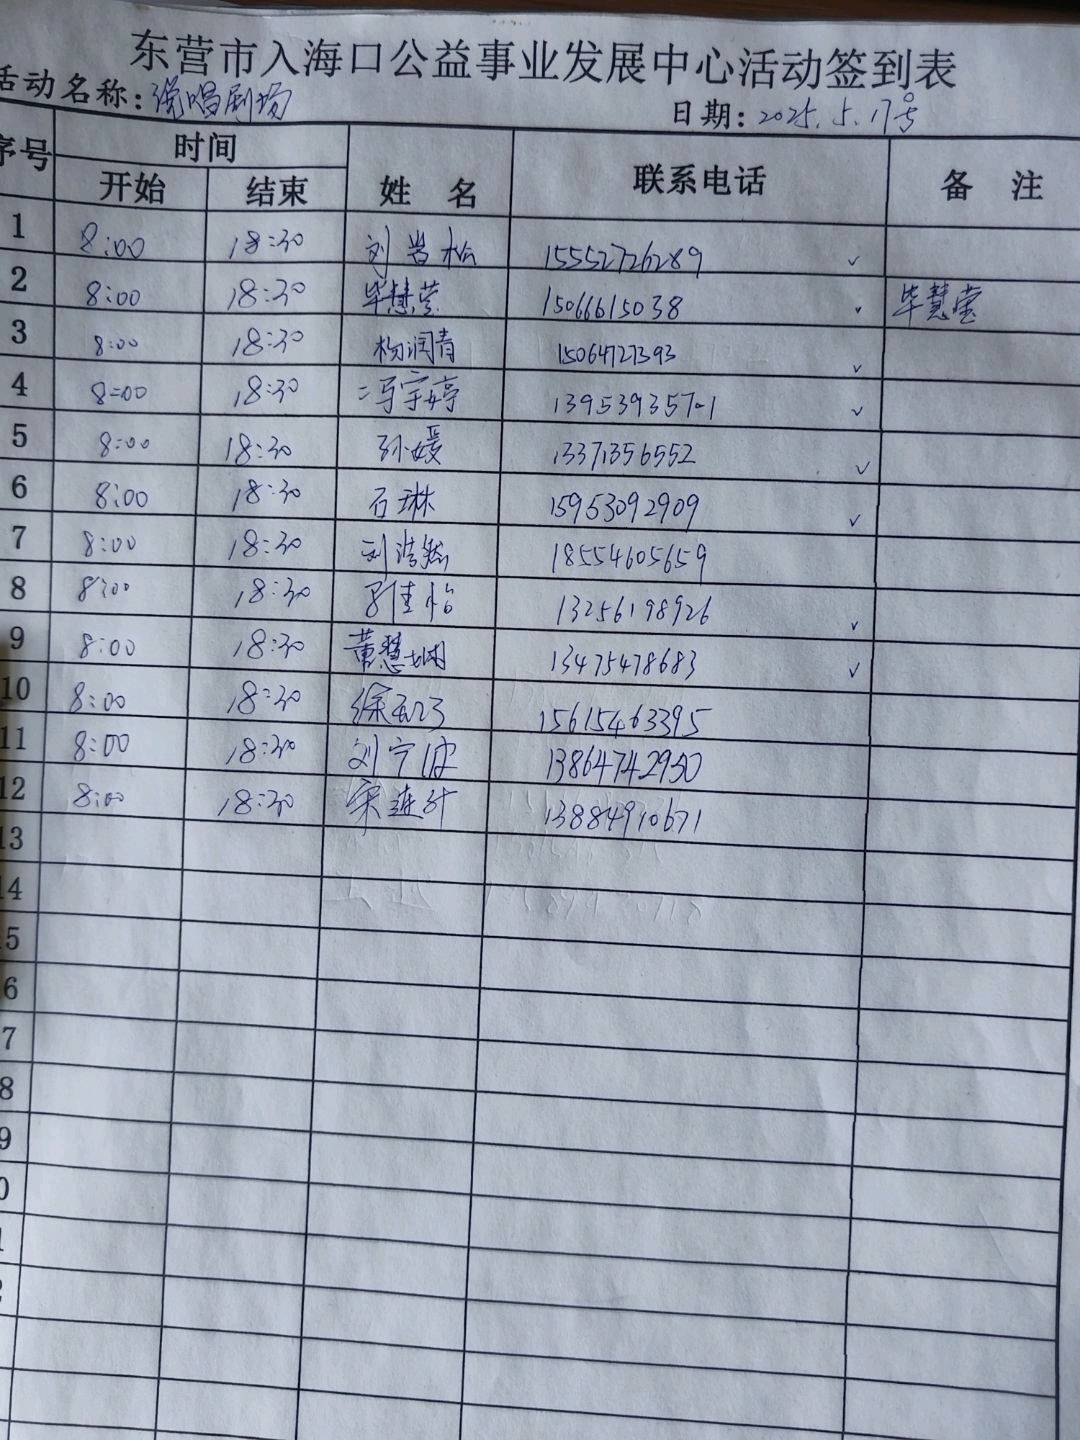 东营市入海口公益事业发展中心活动签到表
活动名称: 说唱剧场
日期: 2025.5.17号
序号 时间 姓 名 联系电话 备 注
开始 结束
1 8:00 18:30 刘岩松 15552726289 ✓
2 8:00 18:30 毕慧莹 15066615038 ✓ 毕慧莹
3 8:00 18:30 杨润青 15064727393 ✓
4 8:00 18:30 冯宇婷 ✓
5 8:00 18:30 孙媛 13371356552 ✓
6 8:00 18:30 石琳 15953092909 ✓
7 8:00 18:30 刘浩然 18554605659
8 8:00 18:30 佳怡 13256198926 ✓
9 8:00 18:30 董慧娴 13475478683 ✓
10 8:00 18:30 徐 15615463395
11 8:00 18:30 刘宁波 13864742950
12 8:00 18:30 宋连 13884910671
13
14
5
6
7
8
9
0
1
2